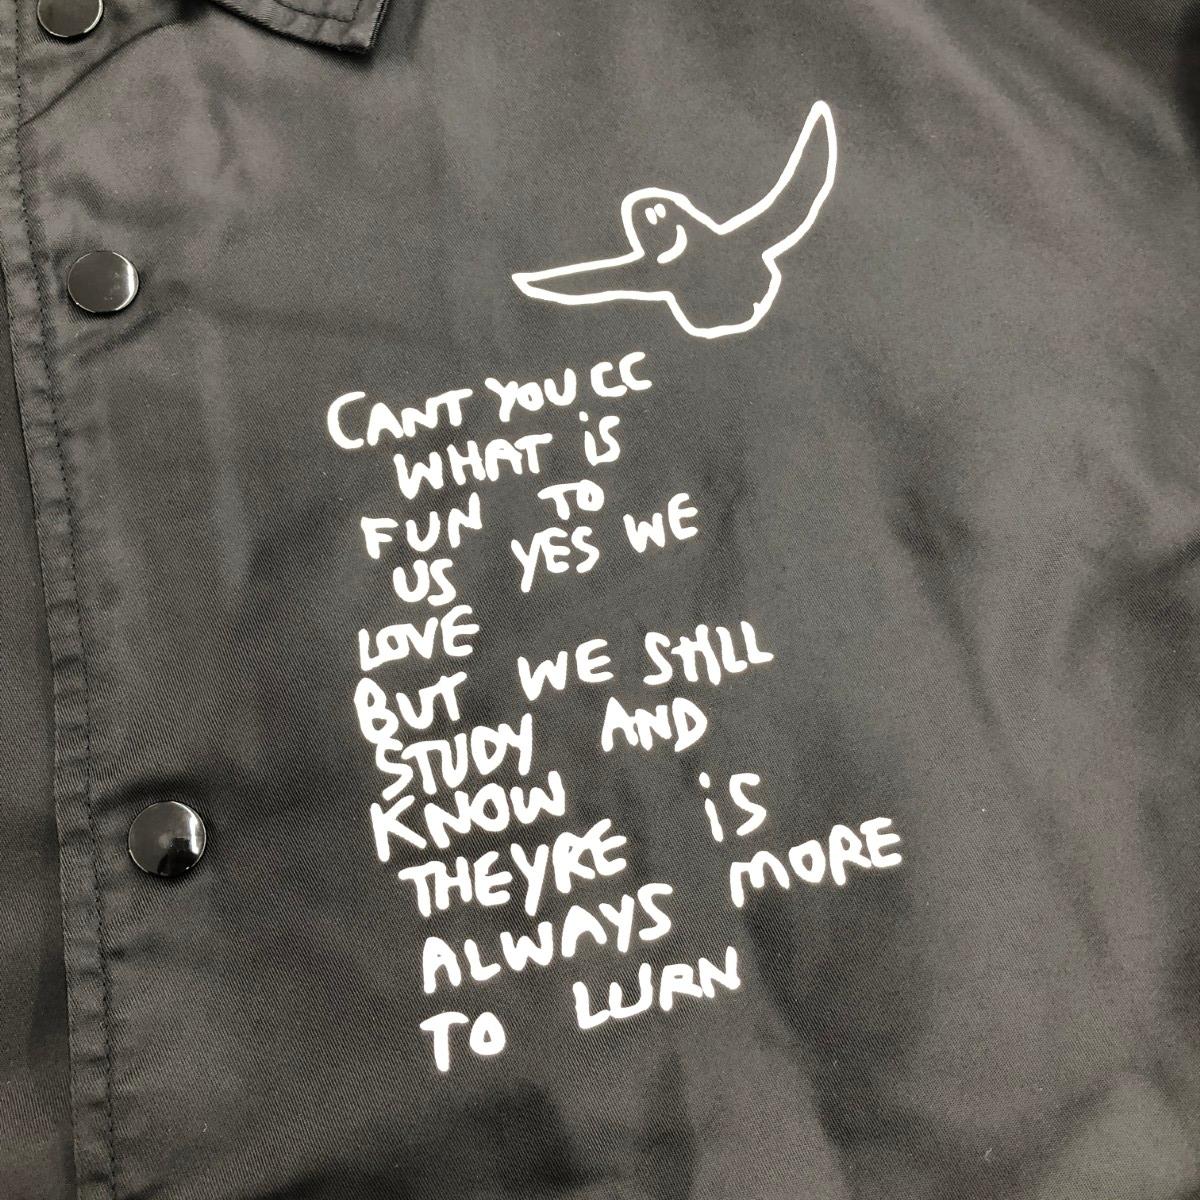 CANT YOU CC
WHAT iS
FUN TO
US YES WE
LOVE
BUT WE STILL
STUDY AND
KNOW iS
THEYRE MORE
ALWAYS
TO LURN